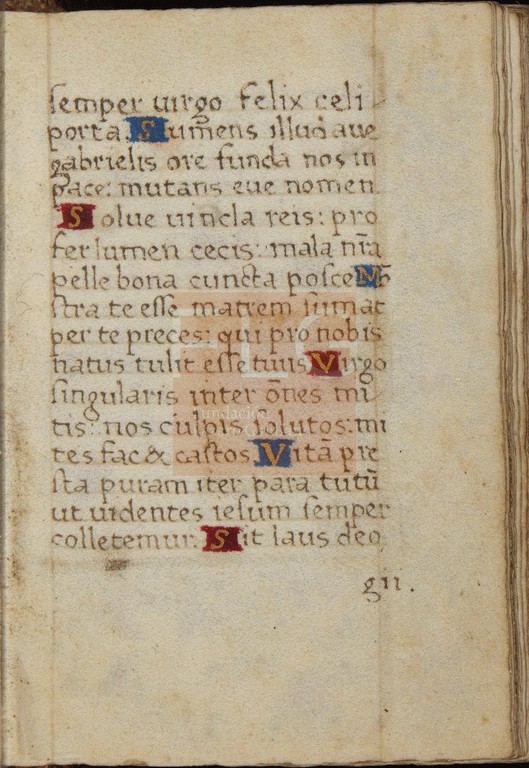 semper uirgo felix celi
porta. Sumens illud aue
gabrielis ore funda nos in
pace: mutans eue nomen
Solue uincla reis: pro
fer lumen cecis: mala nr̃a
pelle bona cuncta posce Mõ
stra te esse matrem sumat
per te preces: qui pro nobis
natus tulit esse tuus Virgo
singularis inter oñes mi
tis: nos culpis solutos: mi
tes fac & castos. Vitã pre
sta puram iter para tutũ
ut uidentes iesum semper
colletemur. Sit laus deo
gii.
fundación